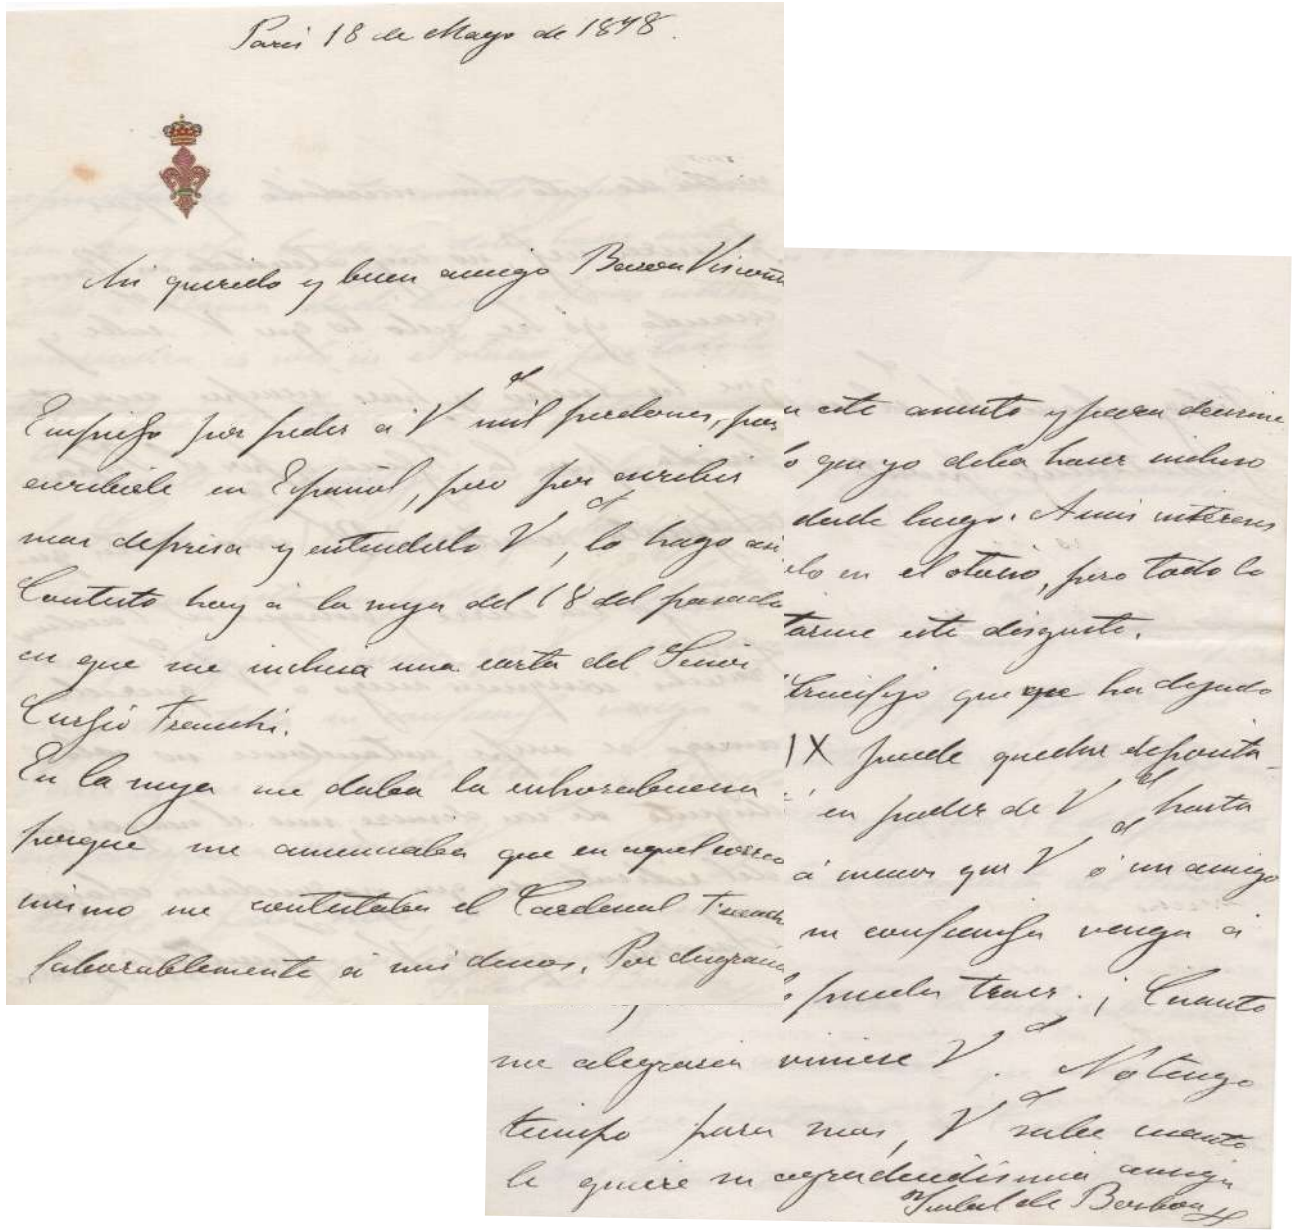 Paris 18 de Mayo de 1878.
Mi querido y buen amigo Baron Visconti
Empiezo por pedir á V.d mil perdones, por
escribirle en Español, pero por escribir
mas deprisa y entenderlo V.d, lo hago asi
Contesto hoy á la suya del 18 del pasado
en que me incluia una carta del Señor
Curzio Franchi.
En la suya me daba la enhorabuena
porque me anunciaba que en aquel correo
mismo me contestaba el Cardenal Franchi
faborablemente á mis deseos. Por desgracia
n este asunto y para decirme
o que yo deba hacer incluso
desde luego. A mis intereses
elo en el otoño, pero todo lo
tarme este disgusto.
Crucifijo que que ha dejado
IX puede quedar deposita-
en poder de V.d hasta
á menos que V.d ó un amigo
su confianza venga á
puedas traer. ¡Cuanto
me alegraria viniese V.d. No tengo
tiempo para mas, V.d sabe cuanto
le quiere su agradecidisima amiga
Isabel de Borbon